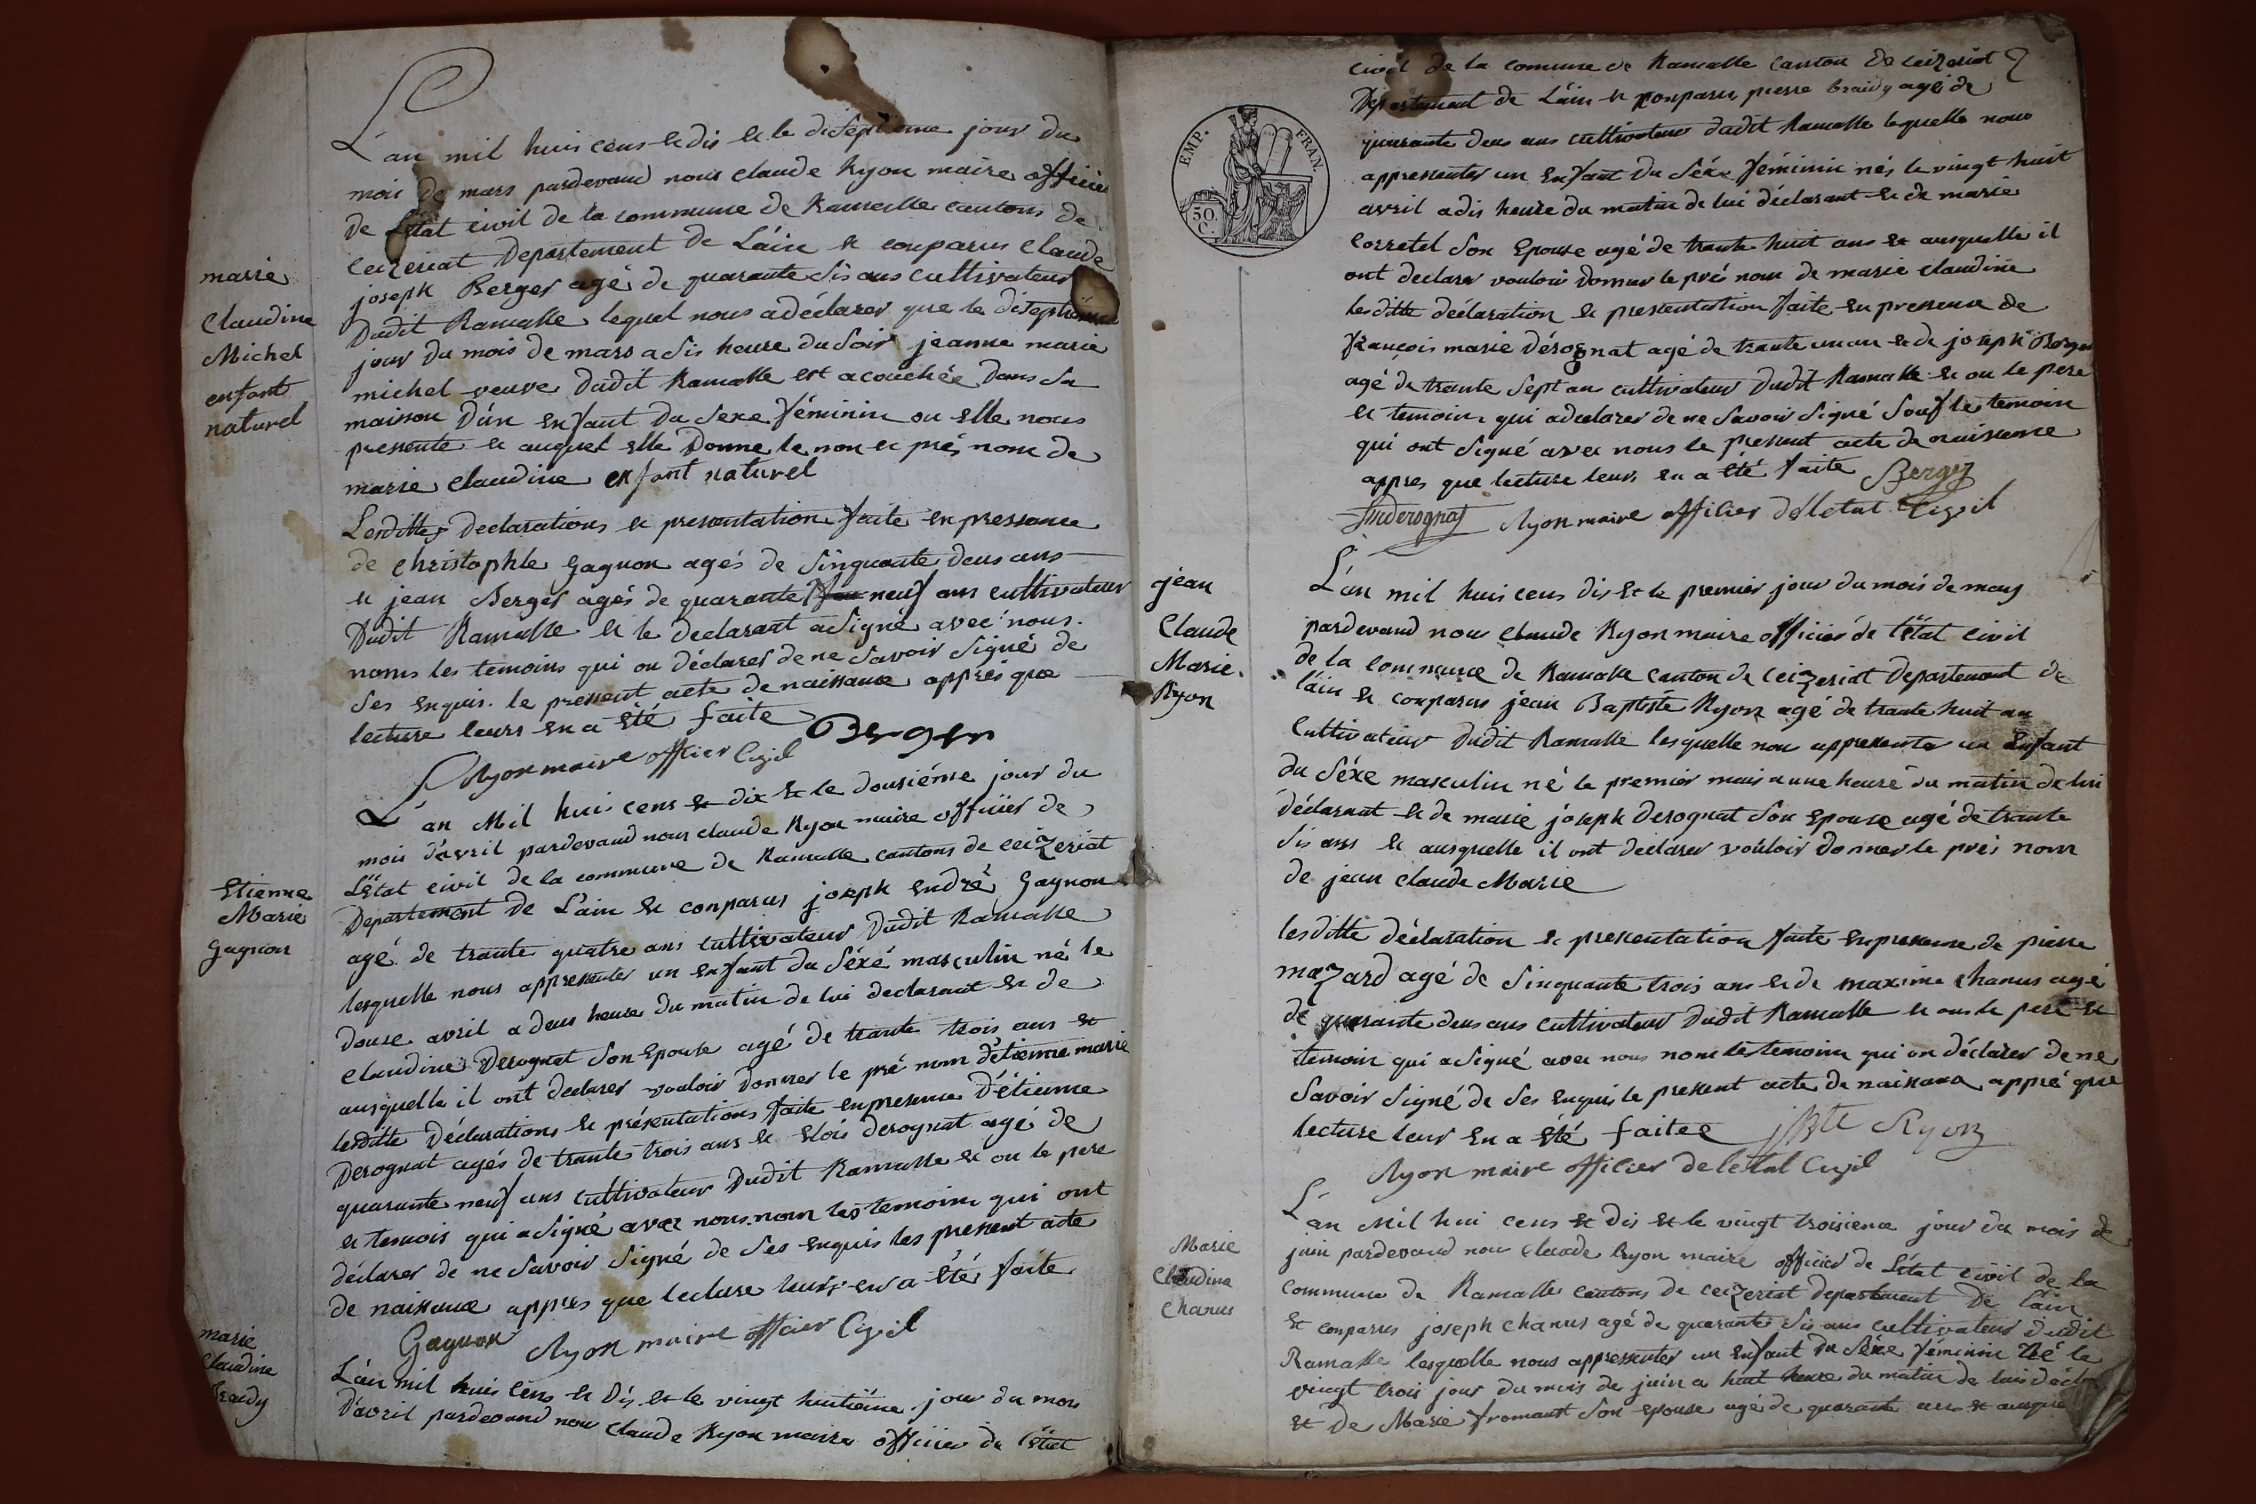 L'an mil huis cens et dis et le diseptieme jour du
mois de mars pardevand nous claude Ryon maire officier
de Letat civil de la commune de Ramasse cantons de
ceizeriat Departement de Láin et conparus claude
joseph Berger agé de quarante sis ans cultivateur
Dudit Ramasse lequel nous a déclarer que le diseptieme
jour du mois de mars a sis heure du soir jeanne marie
michel veuve dudit Ramasse est acouchée dans sa
maison D'un enfant du sexe féminin ou elle nous
pressente et auquel elle Donne le nom et pré nom de
marie claudine enfant naturel
marie
Claudine
Michel
enfant
naturel
Lesdittes Declarations et presentation faite en pressance
de christophle Gagnon agés de Sinquante deus ans
et jean Berger agés de quarante neuf ans cultivateur
Dudit Ramasse et le declarant a signé avec nous.
noms les temoins qui on déclarer de ne savoir signé de
ses enquis. le pressent acte de naissance apprés que
lecture leurs en a été faite Berger
Ryon maire officier Civil
L'an Mil huis cens et dix et le dousiéme jour du
mois d'avril pardevand nous claude Ryon maire officier de
L'état civil de la commune de Ramasse cantons de ceizeriat
Departement de L'ain et conparus joseph endré Gagnon
agé de trante quatre ans cultivateur Dudit Ramasse
lesquelle nous appressenter un enfant du séxé masculin né le
douse avril a deus heure du matin de lui declarant et de
claudine Derognat son Epouse agé de trante trois ans et
ausquelle il ont declarer vouloir donner le pré nom d'étienne marie
lesditte Déclarations et présentations faite enpresence D'étienne
Derognat agés de trante trois ans et elois derognat agé de
quarante neuf ans cultivateur Dudit Ramasse et ou le pere
et temois qui a signé avec nous nom les temoins qui ont
déclarer de ne savoir signé de ses enquis les pressent acte
de naissance appres que lecture leurs en a été faite
Gagnon Ryon maire officier Civil
Etienne
Marie
Gagnon
L'an mil huis cens et Dis et le vingt huitiéme jour du mois
D'avril pardevand nou Claude Ryon maire officier de l'état
marie
Claudine
Braidy
civil de la comune de Ramasse Canton de ceizeriat
Departement de Láin et conparu pierre braidy agé de
quarante deus ans cultivateur dudit Ramasse lequelle nous
appressenter un enfant du Séxe féminin nés le vingt huit
avril a dis heure du matin de lui déclarant et de marie
Corretel son Epouse agé de trante huit ans et ausquelle il
ont declarer vouloir donner le prés nom de marie claudine
lesditte déclaration et pressentation faite en presence de
françois marie dérognat agé de trante un an et de joseph Berger
agé de trante sept an cultivateur Dudit Ramasse et ou le pere
et temoin qui a declarer de ne savoir signé souf les temoin
qui ont signé avec nous le present acte de naissance
appres que lecture leurs en a été faite Berger
fmderognat Ryon maire officier de letat Civil
EMP. FRAN.
50. C.
L'an mil huis cens dis et le premier jour du mois de may
pardevand nous Claude Ryon maire officier de l'état civil
de la commune de Ramasse canton de ceizeriat Departement de
l'ain et conparus jean Baptiste Ryon agé de trante huit an
Cultivateur Dudit Ramasse lesquelle nou appressenter un Enfant
du Séxe masculin né le premier mais a une heure du matin de lui
déclarant et de marie joseph Derognat son Epouse agé de trante
sis ans et ausquelle il ont declarer vouloir donner le prés nom
de jean claude Marie
jean
Claude
Marie
Ryon
lesditte déclaration et presentation faite enpresence de pierre
mazard agé de Sinquante trois ans et de maxime chanus agé
de quarante deus ans cultivateur Dudit Ramasse et ou le pere et
temoin qui a signé avec nous nom les temoins qui on déclarer de ne
savoir signé de ses enquis le present acte de naissance appré que
lecture leur en a été faitee jBte Ryon
Ryon maire officier de letat Civil
L'an Mil hui cens et dis et le vingt troisieme jour du mois de
juin pardevand nou claude Ryon maire officier de L'état civil de la
commune de Ramasse cantons de ceizeriat departement de Láin
et conparus joseph chanus agé de quarante sis ans cultivateur dudit
Ramasse lesquelle nous appressenter un enfant du Séxe féminin Né le
vingt trois jour du mois de juin a huit heure du matin de lui déclar
et de Marie fromant son epouse agé de quarante ans et ausque
Marie
Claudine
Chanus